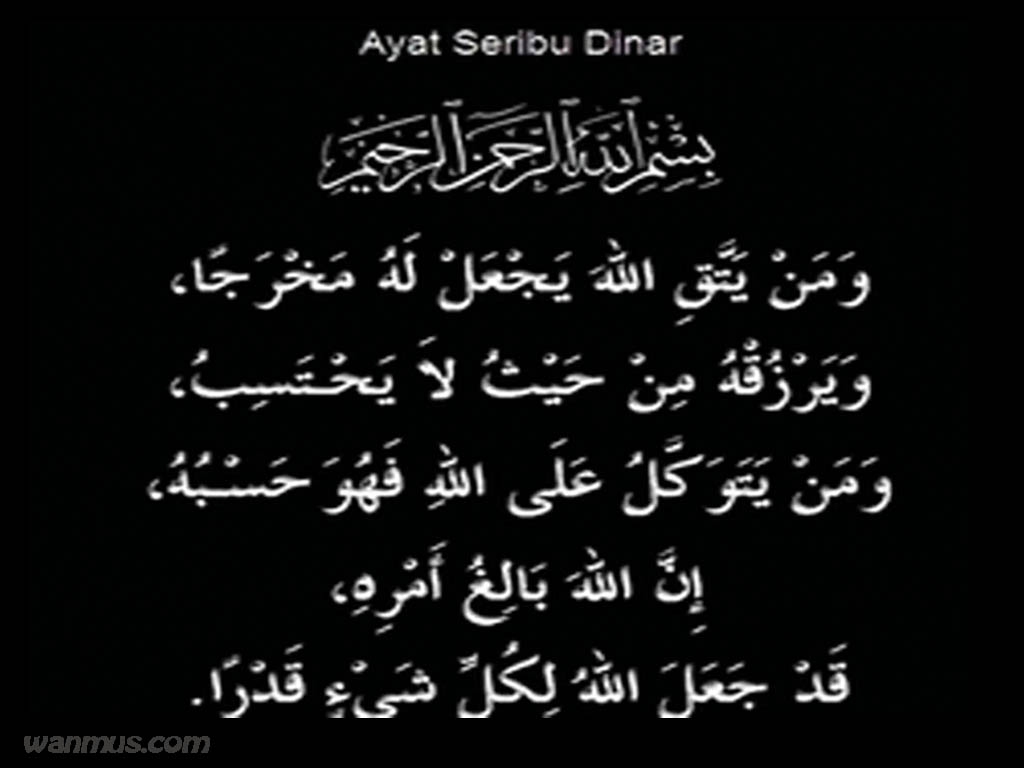 Ayat Seribu Dinar
بِسْمِ اللَّهِ الرَّحْمَٰنِ الرَّحِيمِ
وَمَنْ يَتَّقِ اللهَ يَجْعَلْ لَهُ مَخْرَجًا،
وَيَرْزُقْهُ مِنْ حَيْثُ لاَ يَحْتَسِبُ،
وَمَنْ يَتَوَكَّلُ عَلَى اللهِ فَهُوَ حَسْبُهُ،
إِنَّ اللهَ بَالِغُ أَمْرِهِ،
قَدْ جَعَلَ اللهُ لِكُلِّ شَيْءٍ قَدْرًا.
wanmus.com